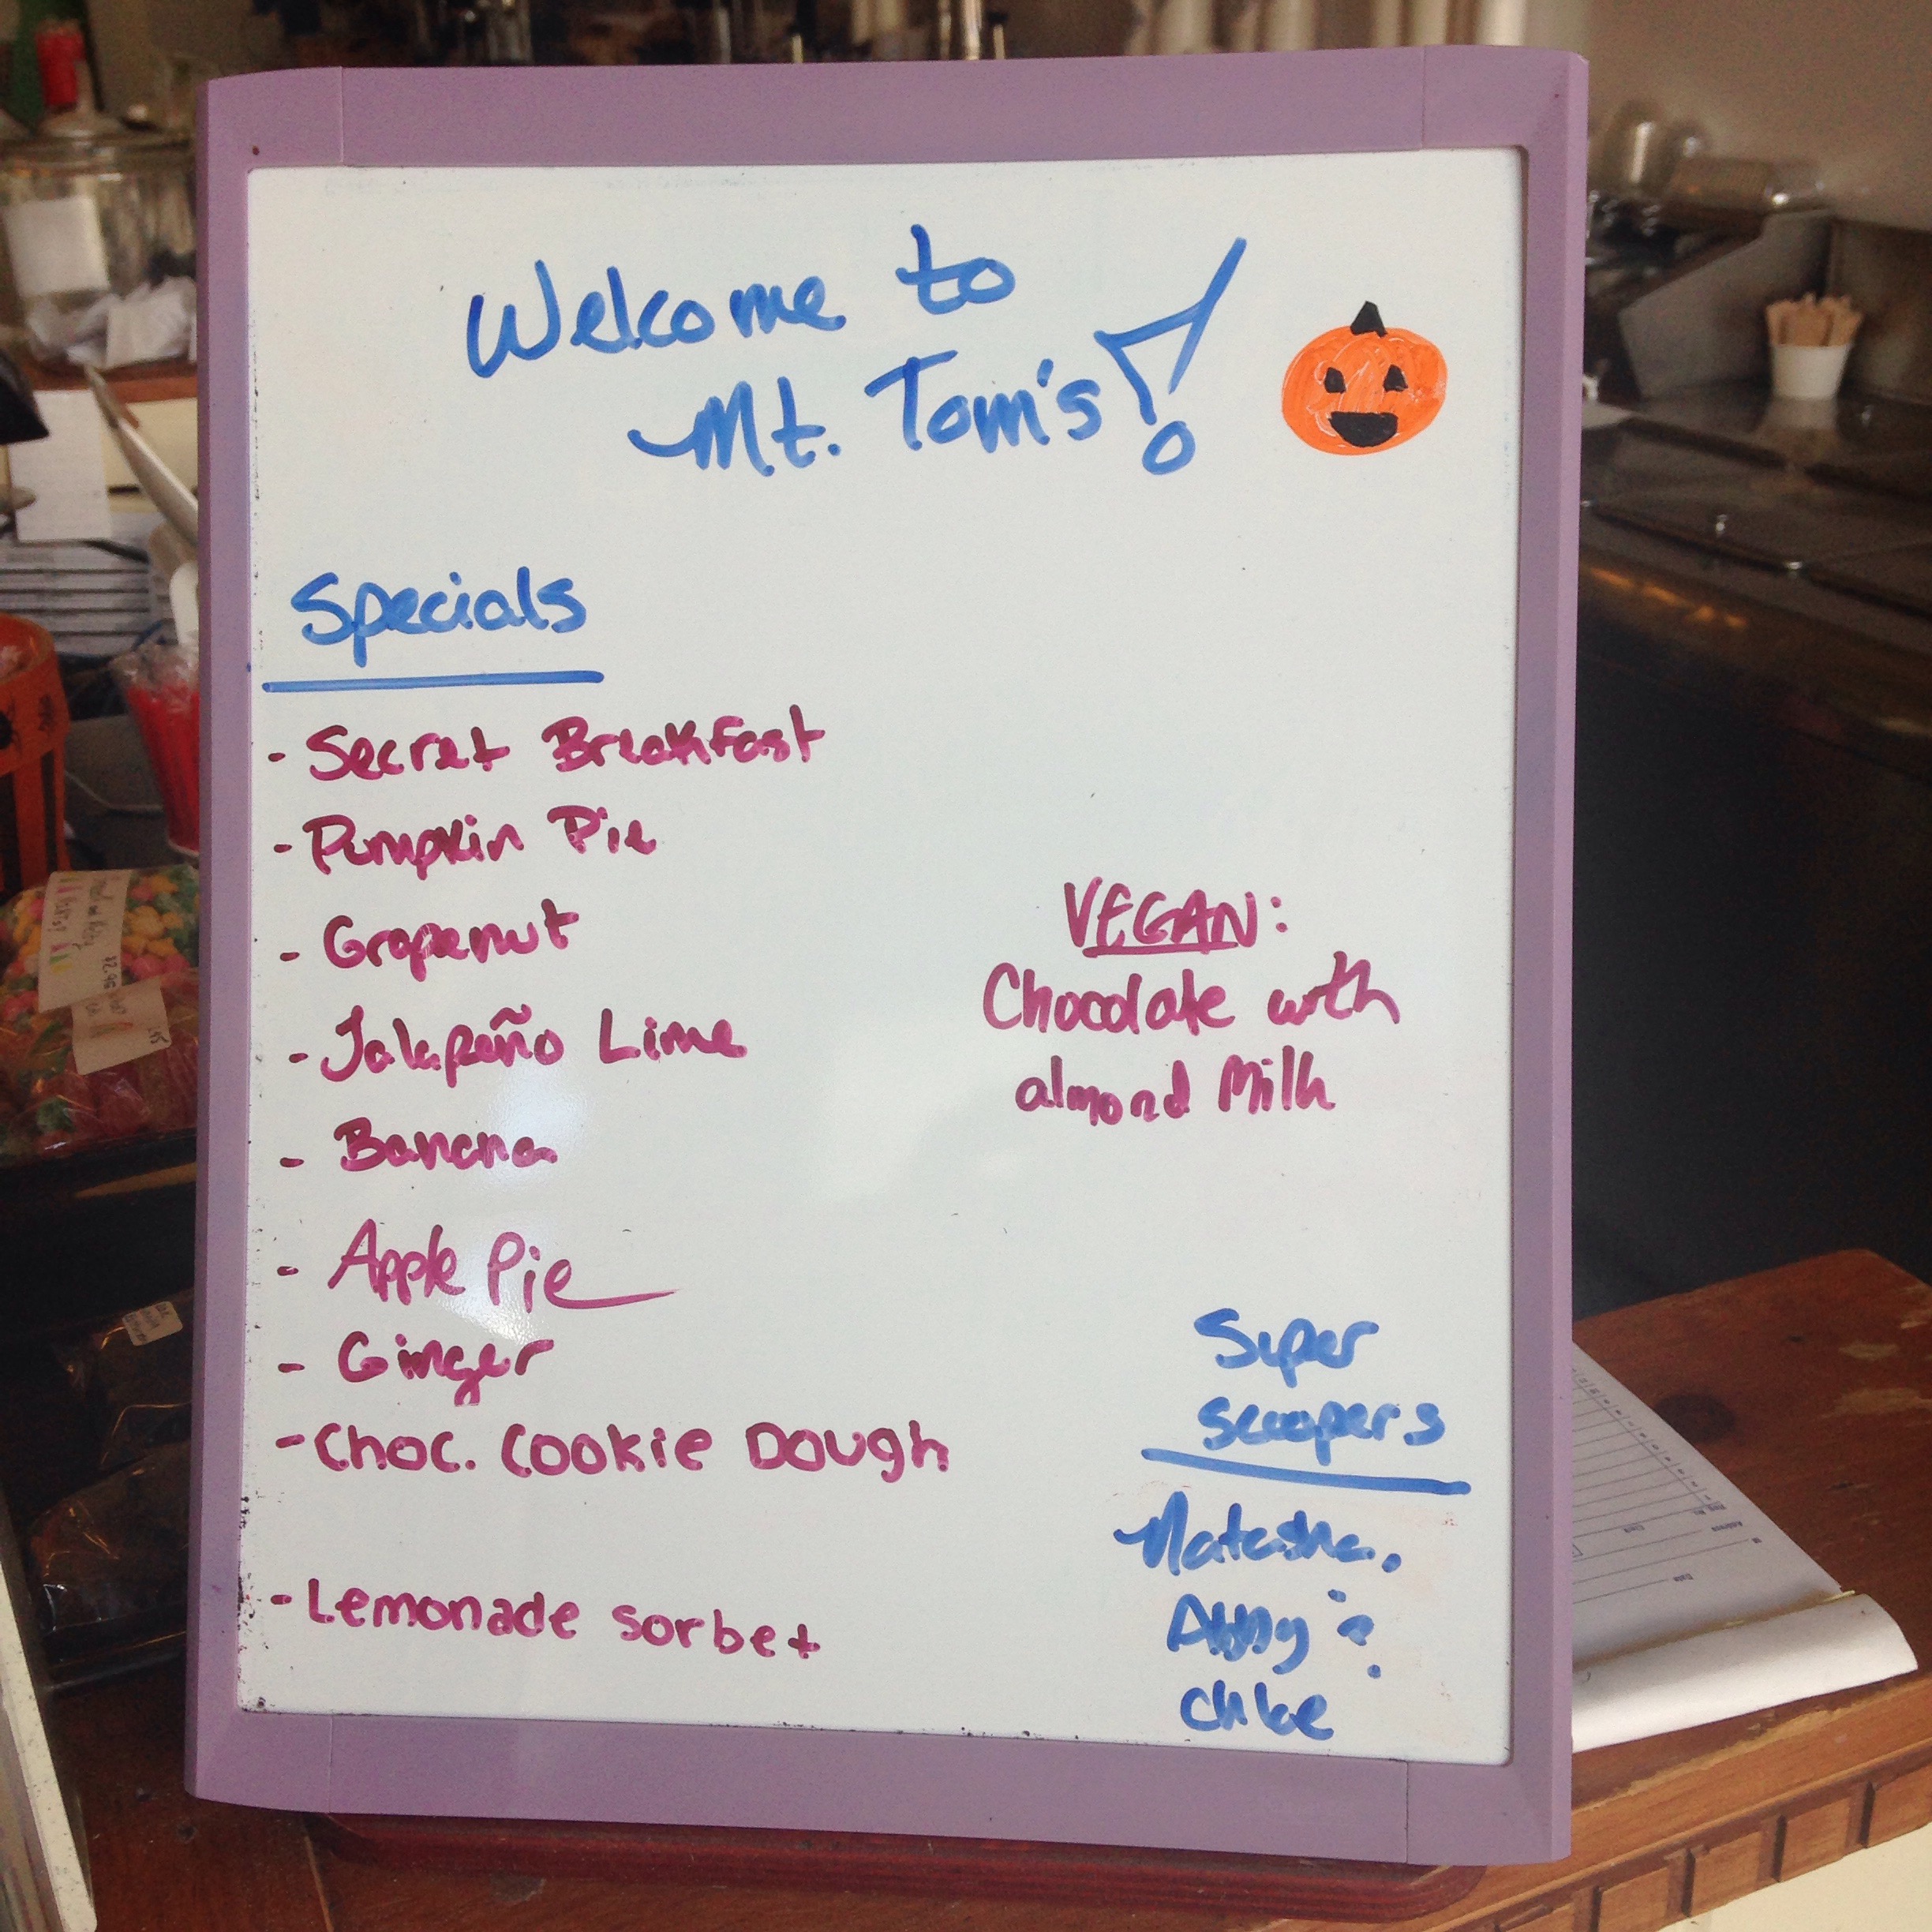 Welcome to
Mt. Tom's!
Specials
- Secret Breakfast
- Pumpkin Pie
- Grapenut
- Jalapeño Lime
- Banana
- Apple Pie
- Ginger
- Choc. Cookie Dough
- Lemonade Sorbet
VEGAN:
Chocolate with
almond Milk
Super
Scoopers
Natasha,
Abby &
Chloe